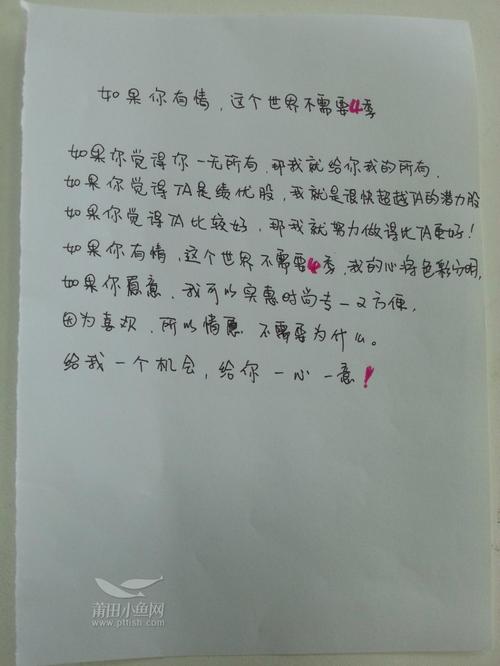 如果你有情，这个世界不需要4季
如果你觉得你一无所有，那我就给你我的所有，
如果你觉得TA是绩优股，我就是很快超越TA的潜力股
如果你觉得TA比较好，那我就努力做得比TA更好！
如果你有情，这个世界不需要4季，我的心将色彩分明，
如果你愿意，我可以实惠时尚专一又方便，
因为喜欢，所以情愿，不需要为什么。
给我一个机会，给你一心一意！
莆田小鱼网
www.pttish.com